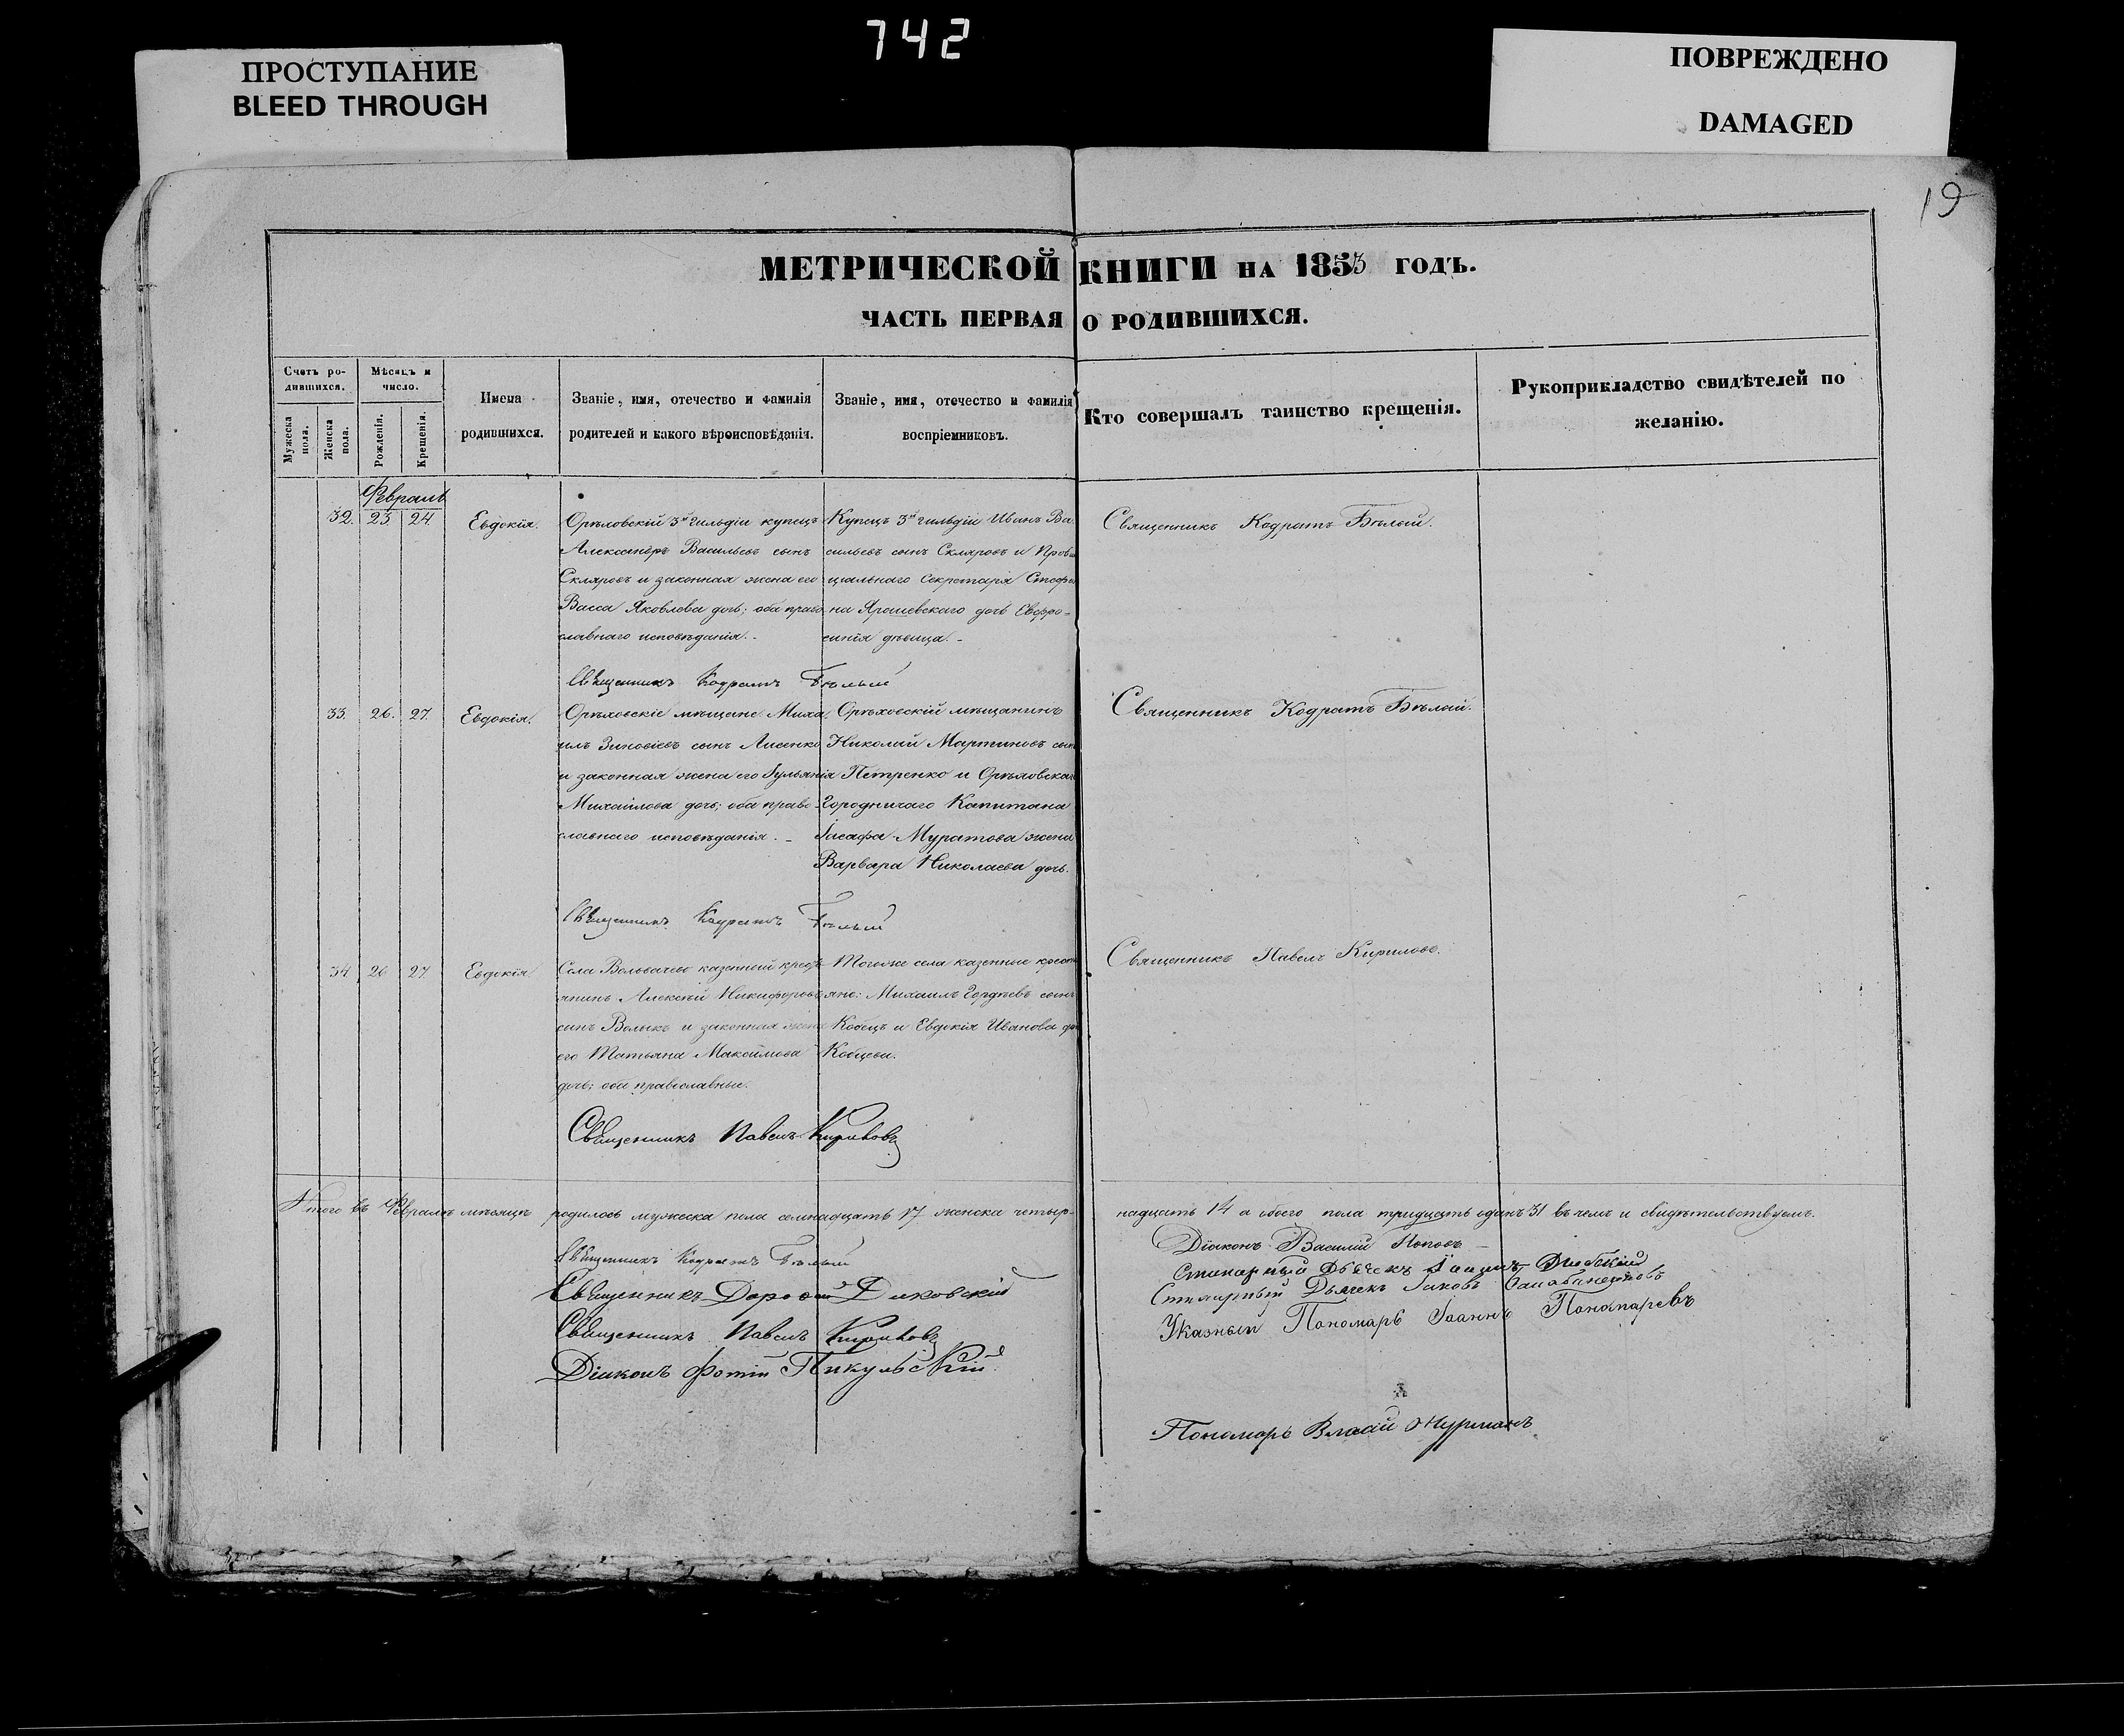 742
ПРОСТУПАНИЕ
BLEED THROUGH
ПОВРЕЖДЕНО
DAMAGED
19
МЕТРИЧЕСКОЙ КНИГИ НА 1853 ГОДЪ.
ЧАСТЬ ПЕРВАЯ О РОДИВШИХСЯ.
Счетъ ро-
дившихся.
Мужеска пола.
Женска пола.
Мѣсяцъ и
число.
Рожденія.
Крещенія.
Имена
родившихся.
Званіе, имя, отечество и фамилія
родителей и какого вѣроисповѣданія.
Званіе, имя, отечество и фамилія
воспріемниковъ.
Кто совершалъ таинство крещенія.
Рукоприкладство свидѣтелей по
желанію.
Февраль
32. 23 24 Евдокія.
Орѣховскій 3й гильдіи купецъ
Александръ Васильевъ сынъ
Скляровъ и законная жена его
Васса Яковлева дочь; оба право
славнаго исповѣданія.
Купецъ 3й гильдіи Иванъ Ва
сильевъ сынъ Скляровъ и Прови
ціальнаго Секретаря Стефа
на Ярошевскаго дочь Евфро-
синія дѣвица.
Священникъ Кодратъ Бѣлый.
Священникъ Кодратъ Бѣлый
33. 26. 27. Евдокія.
Орѣховскіе мѣщане Миха
илъ Зиновіевъ сынъ Лисенко
и законная жена его Іульянія
Михайлова дочь; оба право-
славнаго исповѣданія.
Орѣховскій мѣщанинъ
Николай Мартиновъ сынъ
Петренко и Орѣховскаго
Городничаго Капитана
Іасафа Муратова жена
Варвара Николаева дочь.
Священникъ Кодратъ Бѣлый.
Священникъ Кодратъ Бѣлый
34 26 27 Евдокія
Села казенный крестъ
янинъ Алексѣй Никифоровъ
сынъ Волыкъ и законная жена
его Татьяна Максимова
дочь; оба православные.
Тогоже села казенные кресть
яне: Михаилъ Гордѣевъ сынъ
Кобецъ и Евдокія Иванова доч
Кобцева.
Священникъ Павелъ Кириловъ.
Священникъ Павелъ Кириловъ
Итого въ Февралѣ мѣсяцѣ родилось мужеска пола семнадцать 17 женска четыр-
надцать 14 а обоего пола тридцать одинъ 31 въ чемъ и свидѣтельствуемъ.
Священникъ Кодратъ Бѣлый
Священникъ Дорофей
Священникъ Павелъ Кириловъ
Діаконъ Фотій Пикульскій
Діаконъ Василій Поповъ
Дьячекъ
Дьячекъ Іаковъ
Указный Пономарь Іоаннъ Пономаревъ
Пономарь Власій